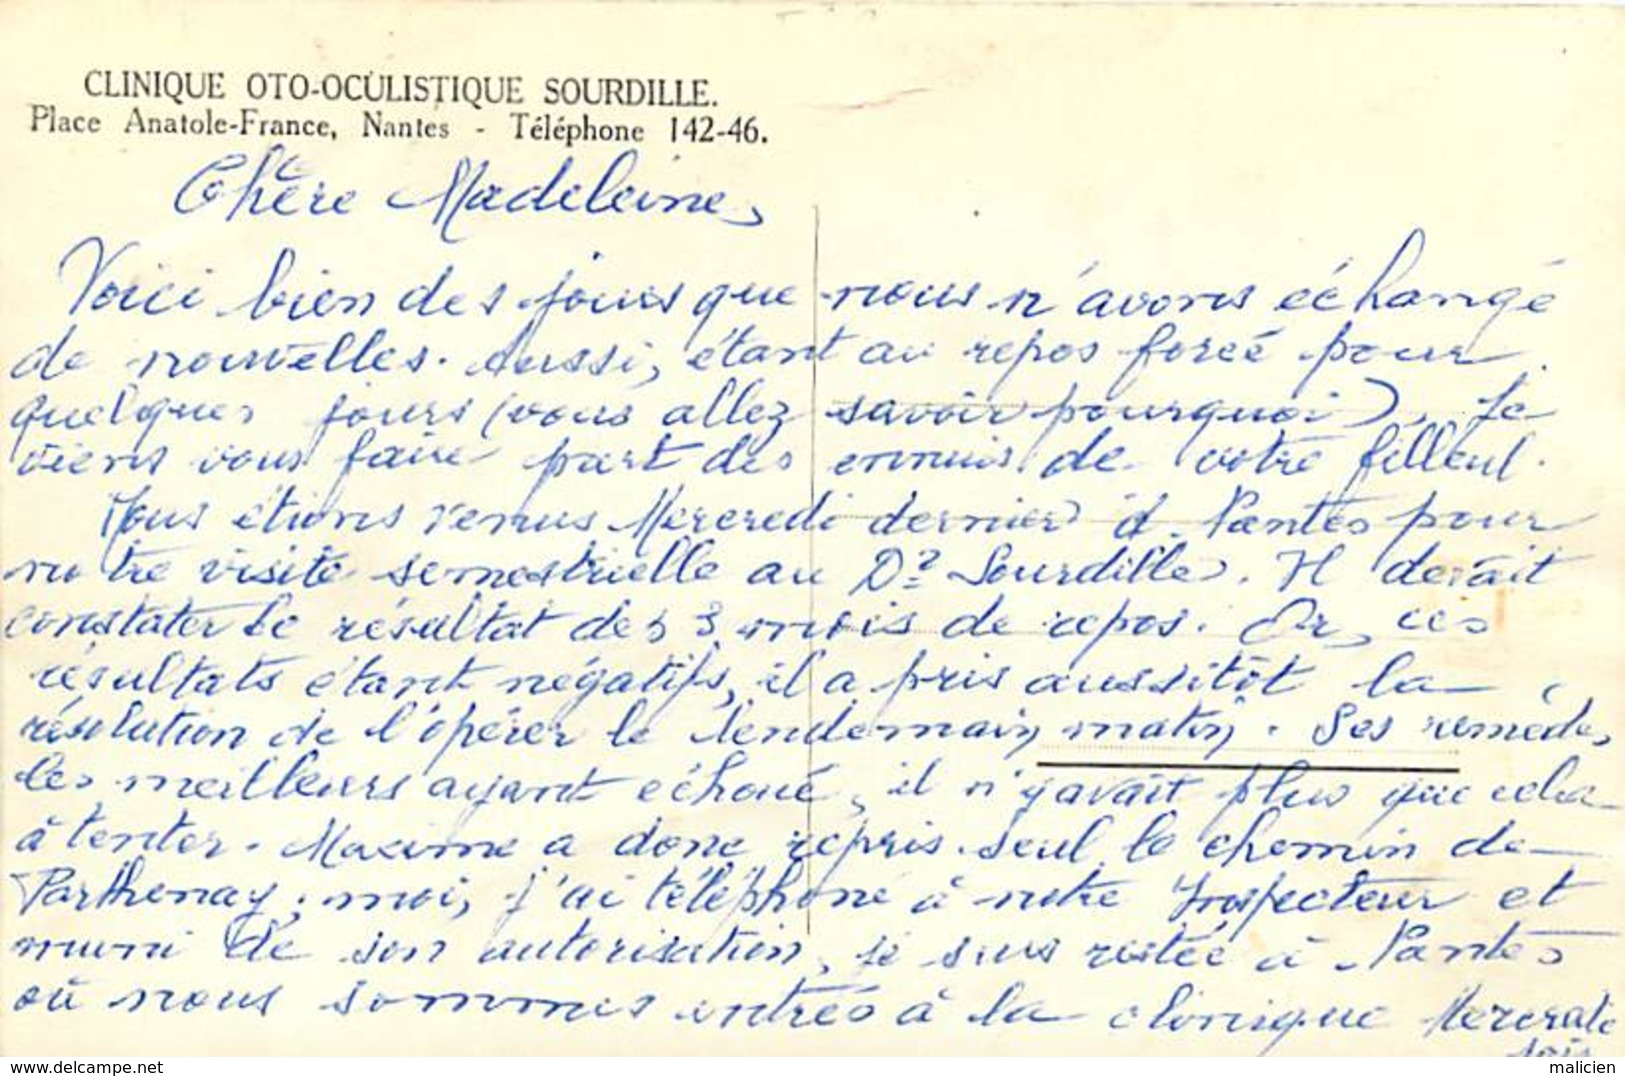 CLINIQUE OTO-OCULISTIQUE SOURDILLE.
Place Anatole-France, Nantes - Téléphone 142-46.
Chère Madeleine,
Voici bien des jours que nous n'avons échangé
de nouvelles. Aussi, étant au repos forcé pour
quelques jours (vous allez savoir pourquoi), je
viens vous faire part des ennuis de votre filleul.
Nous étions venus Mercredi dernier à Nantes pour
notre visite semestrielle au Dr Sourdille. Il devait
constater le résultat des 3 mois de repos. Or, ces
résultats étant négatifs, il a pris aussitôt la
résolution de l'opérer le lendemain matin. Ses remèdes
les meilleurs ayant échoué, il n'y avait plus que cela
à tenter. Maxime a donc repris seul le chemin de
Parthenay; moi, j'ai téléphoné à notre Inspecteur et
muni de son autorisation, je suis restée à Nantes
où nous sommes entrés à la clinique Mercredi
soir
www.delcampe.net
malicien